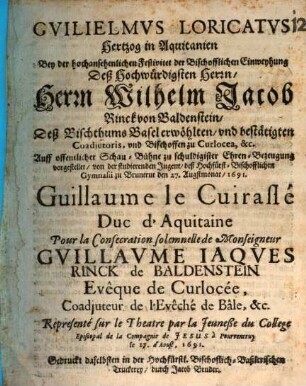 GVILIELMVS LORICATVS
12
Hertzog in Aquitanien
Bey der hochansehenlichen Festivitet der Bischofflichen Einweyhung
Deß Hochwürdigsten Herrn/
Herrn Wilhelm Jacob
Rinck von Baldenstein/
Deß Bischthums Basel erwöhlten/ und bestätigten
Coadjutoris, und Bischoffen zu Curlocea, &c.
Auff offentlicher Schau-Bühne zu schuldigister Ehren-Bezeugung
vorgestellet/ von der studierenden Jugent/ deß Hochfürstl. Bischofflichen
Gymnasii zu Bruntrut den 27. Augstmonat/ 1691.
Guillaume le Cuirassé
Duc d'Aquitaine
Pour la Consecration solemnelle de Monseigneur
GVILLAVME IAQVES
RINCK de BALDENSTEIN
Evêque de Curlocée,
Coadjuteur de l'Evêché de Bâle, &c.
Représenté sur le Theatre par la Jeunesse du College
Episcopal de la Compagnie de JESUS à Pourrentruy
le 27. d'Aoust, 1691.
Gedruckt daselbsten in der Hochfürstl. Bischofflich-Baßlerischen
Truckerey/ durch Jacob